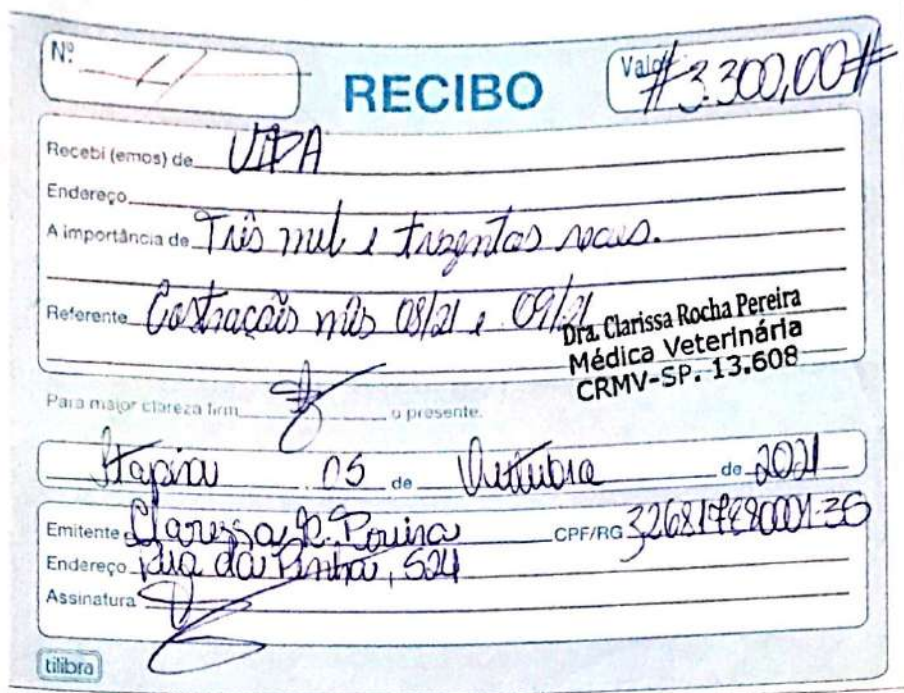 Nº
RECIBO
Valor #3.300,00#
Recebi (emos) de UIPA
Endereço
A importância de Três mil e trezentos reais.
Referente Castração mês 08/21 e 09/21
Dra. Clarissa Rocha Pereira
Médica Veterinária
CRMV-SP. 13.608
Para maior clareza firm o presente.
Itapira 05 de Outubro de 2021
Emitente Clarissa R. Pereira CPF/RG
Endereço Rua da Penha, 524
Assinatura
tilibra